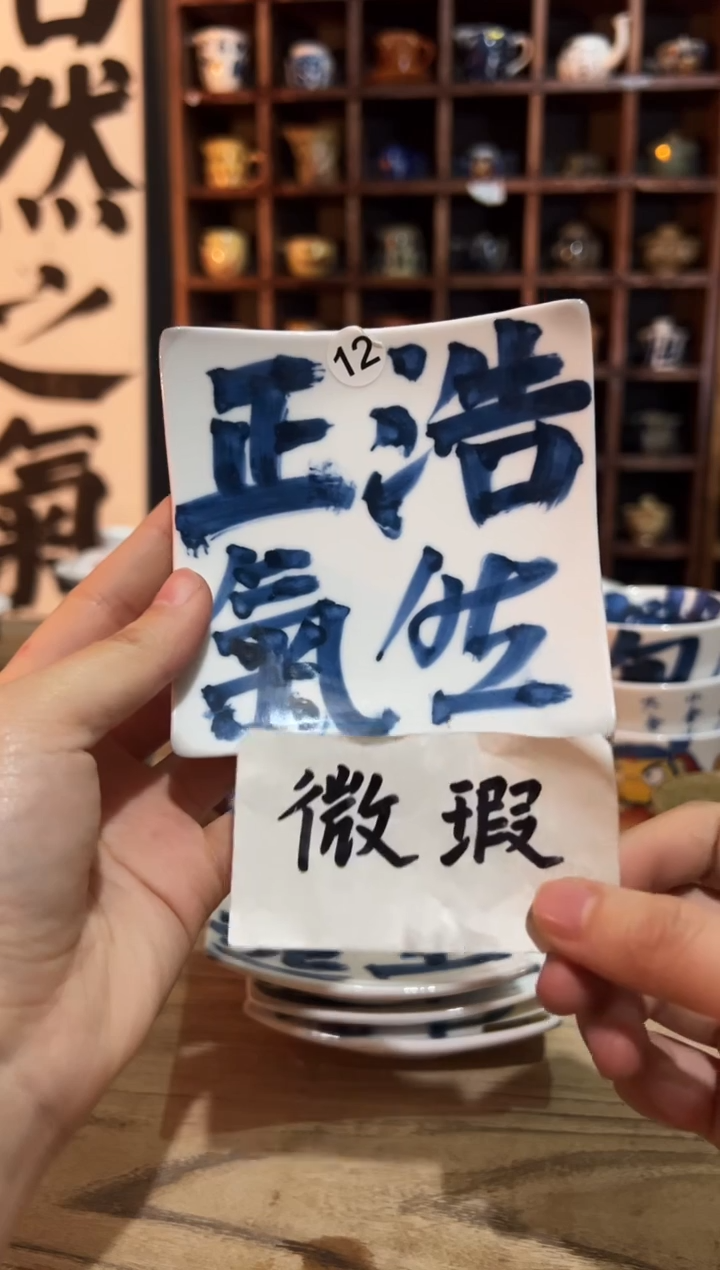 12
浩然
正氣
微瑕
然之氣